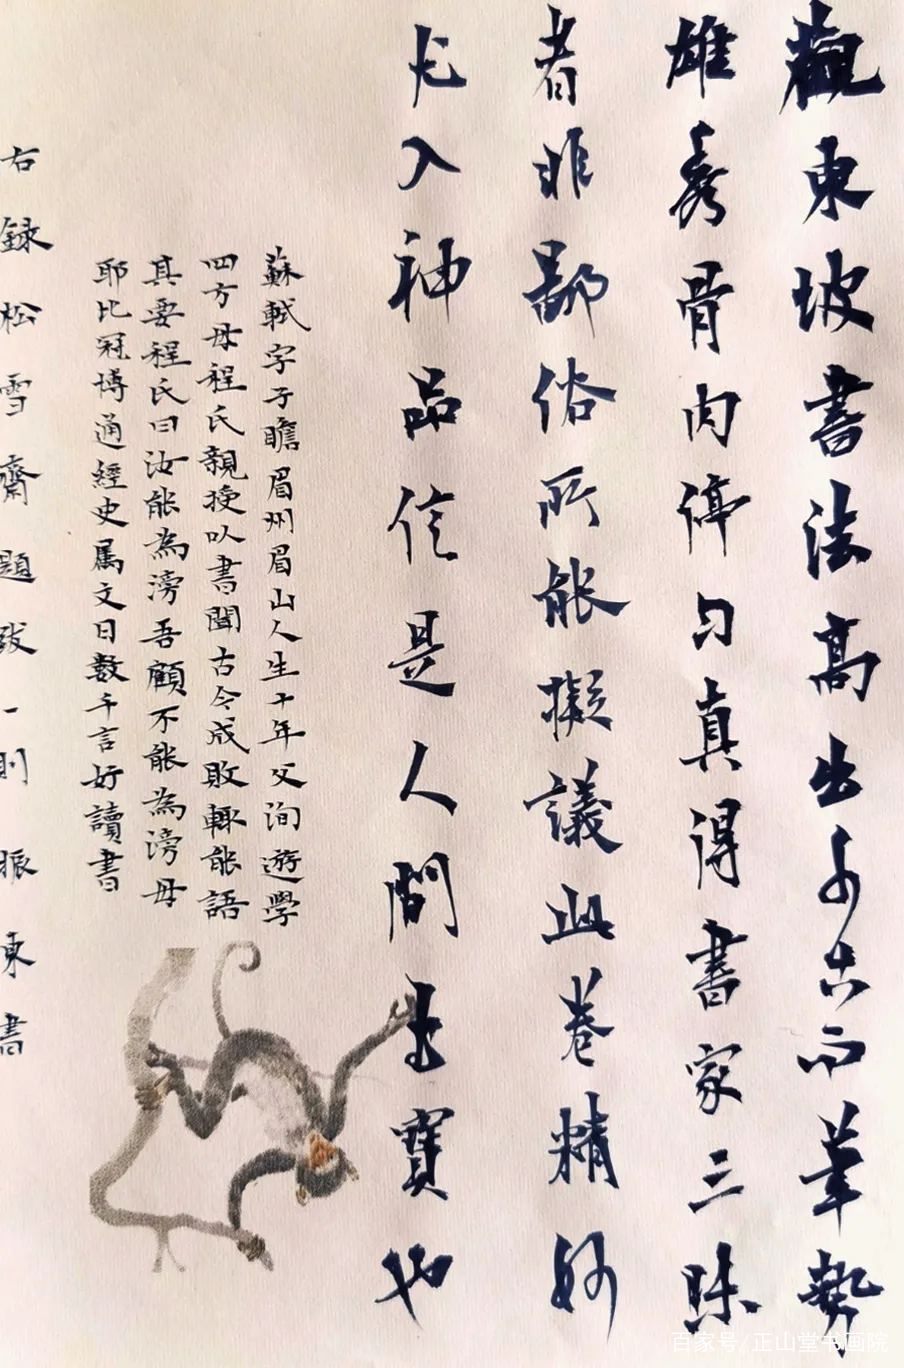 觀東坡書法高出千古而筆勢
雄秀骨肉停勻真得書家三昧
者非鄙俗所能擬議此卷精妙
尤入神品信是人間至寶也
蘇軾字子瞻眉州眉山人生十年父洵遊學
四方母程氏親授以書聞古今成敗輒能語
其要程氏曰汝能為滂吾顧不能為滂母
耶比冠博通經史屬文日數千言好讀書
右録松雪齋題跋一則振東書
百家号/正山堂书画院